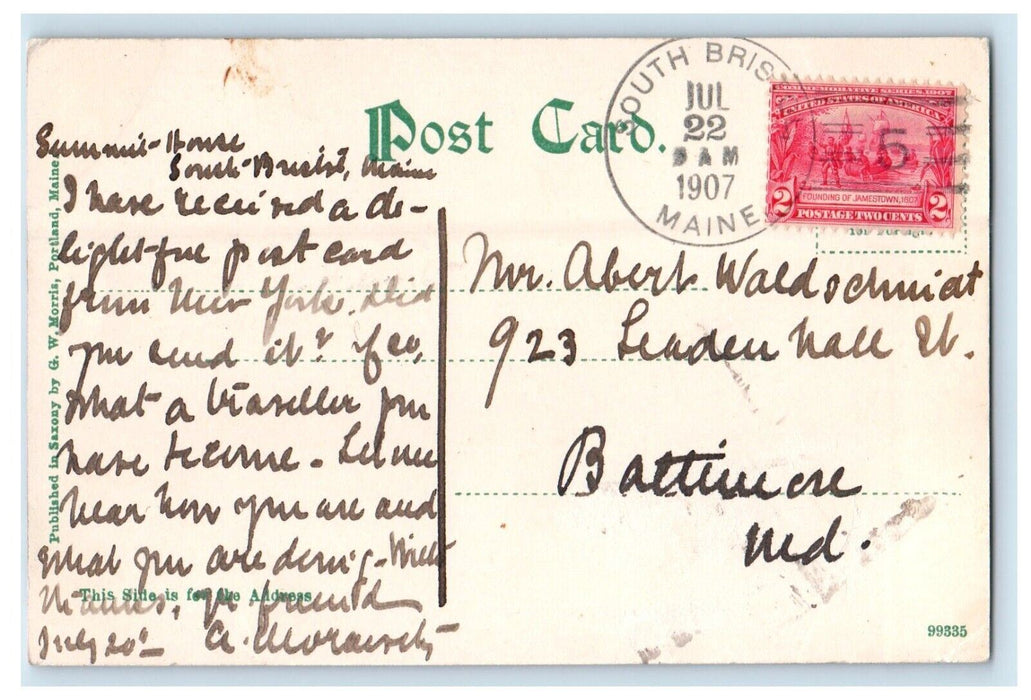 Post Card.
SOUTH BRIS
JUL
22
9 AM
1907
MAINE
COMMEMORATIVE SERIES, 1907
UNITED STATES OF AMERICA
5
FOUNDING OF JAMESTOWN, 1607
2 POSTAGE TWO CENTS 2
Summit House
South Bristol, Maine
I have received a de-
lightful post card
from New York. Did
you send it? If so,
what a traveller you
have become. Let me
hear how you are and
what you are doing. With
yr friend
July 20th A.
Mr. Abert Waldschmidt
923 Leadenhall St.
Baltimore
Md.
This Side is for the Address
Published in Saxony by G. W. Morris, Portland, Maine
99335